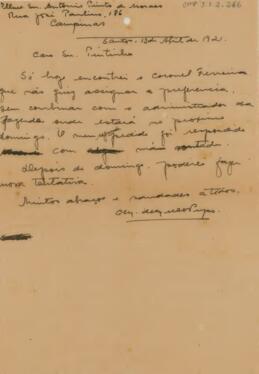 Illmo Sr. Antonio Pinto de Moraes
Rua José Paulino, 176
Campinas
Santos, 13 de Abril de 192
Caro Sr. Pintinho
Só hoje encontrei o coronel Ferreira
que não quiz assignar a preferencia,
sem combinar com o administrador da
fazenda onde estará no proximo
domingo. O meu pedido foi respondido
com má
Depois de domingo poderei fazer
nova tentativa.
Muitos abraços e saudades a todos.